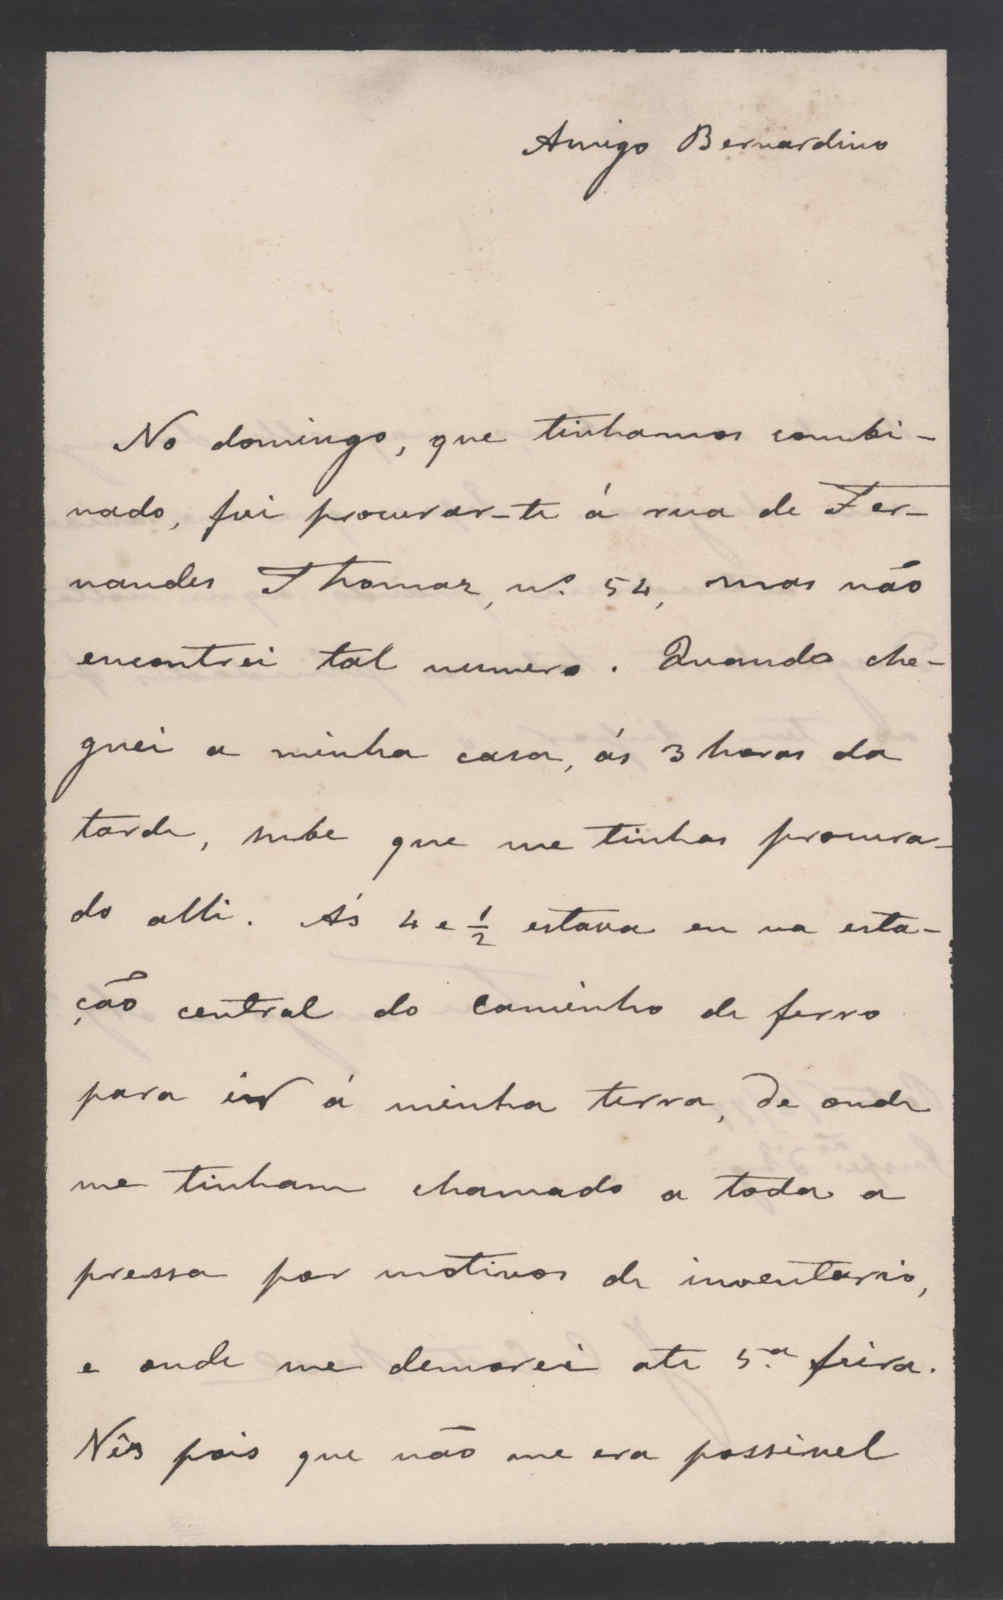 Amigo Bernardino
No domingo, que tinhamos combi-
nado, fui procurar-te á rua de Fer-
nandes Thomaz, nº. 54, mas não
encontrei tal numero. Quando che-
guei a minha casa, ás 3 horas da
tarde, sube que me tinhas procura-
do alli. Ás 4 e ½ estava eu na esta-
ção central do caminho de ferro
para ir á minha terra, de onde
me tinham chamado a toda a
pressa por motivos de inventario,
e onde me demorei ate 5.ª feira.
Vês pois que não me era possivel